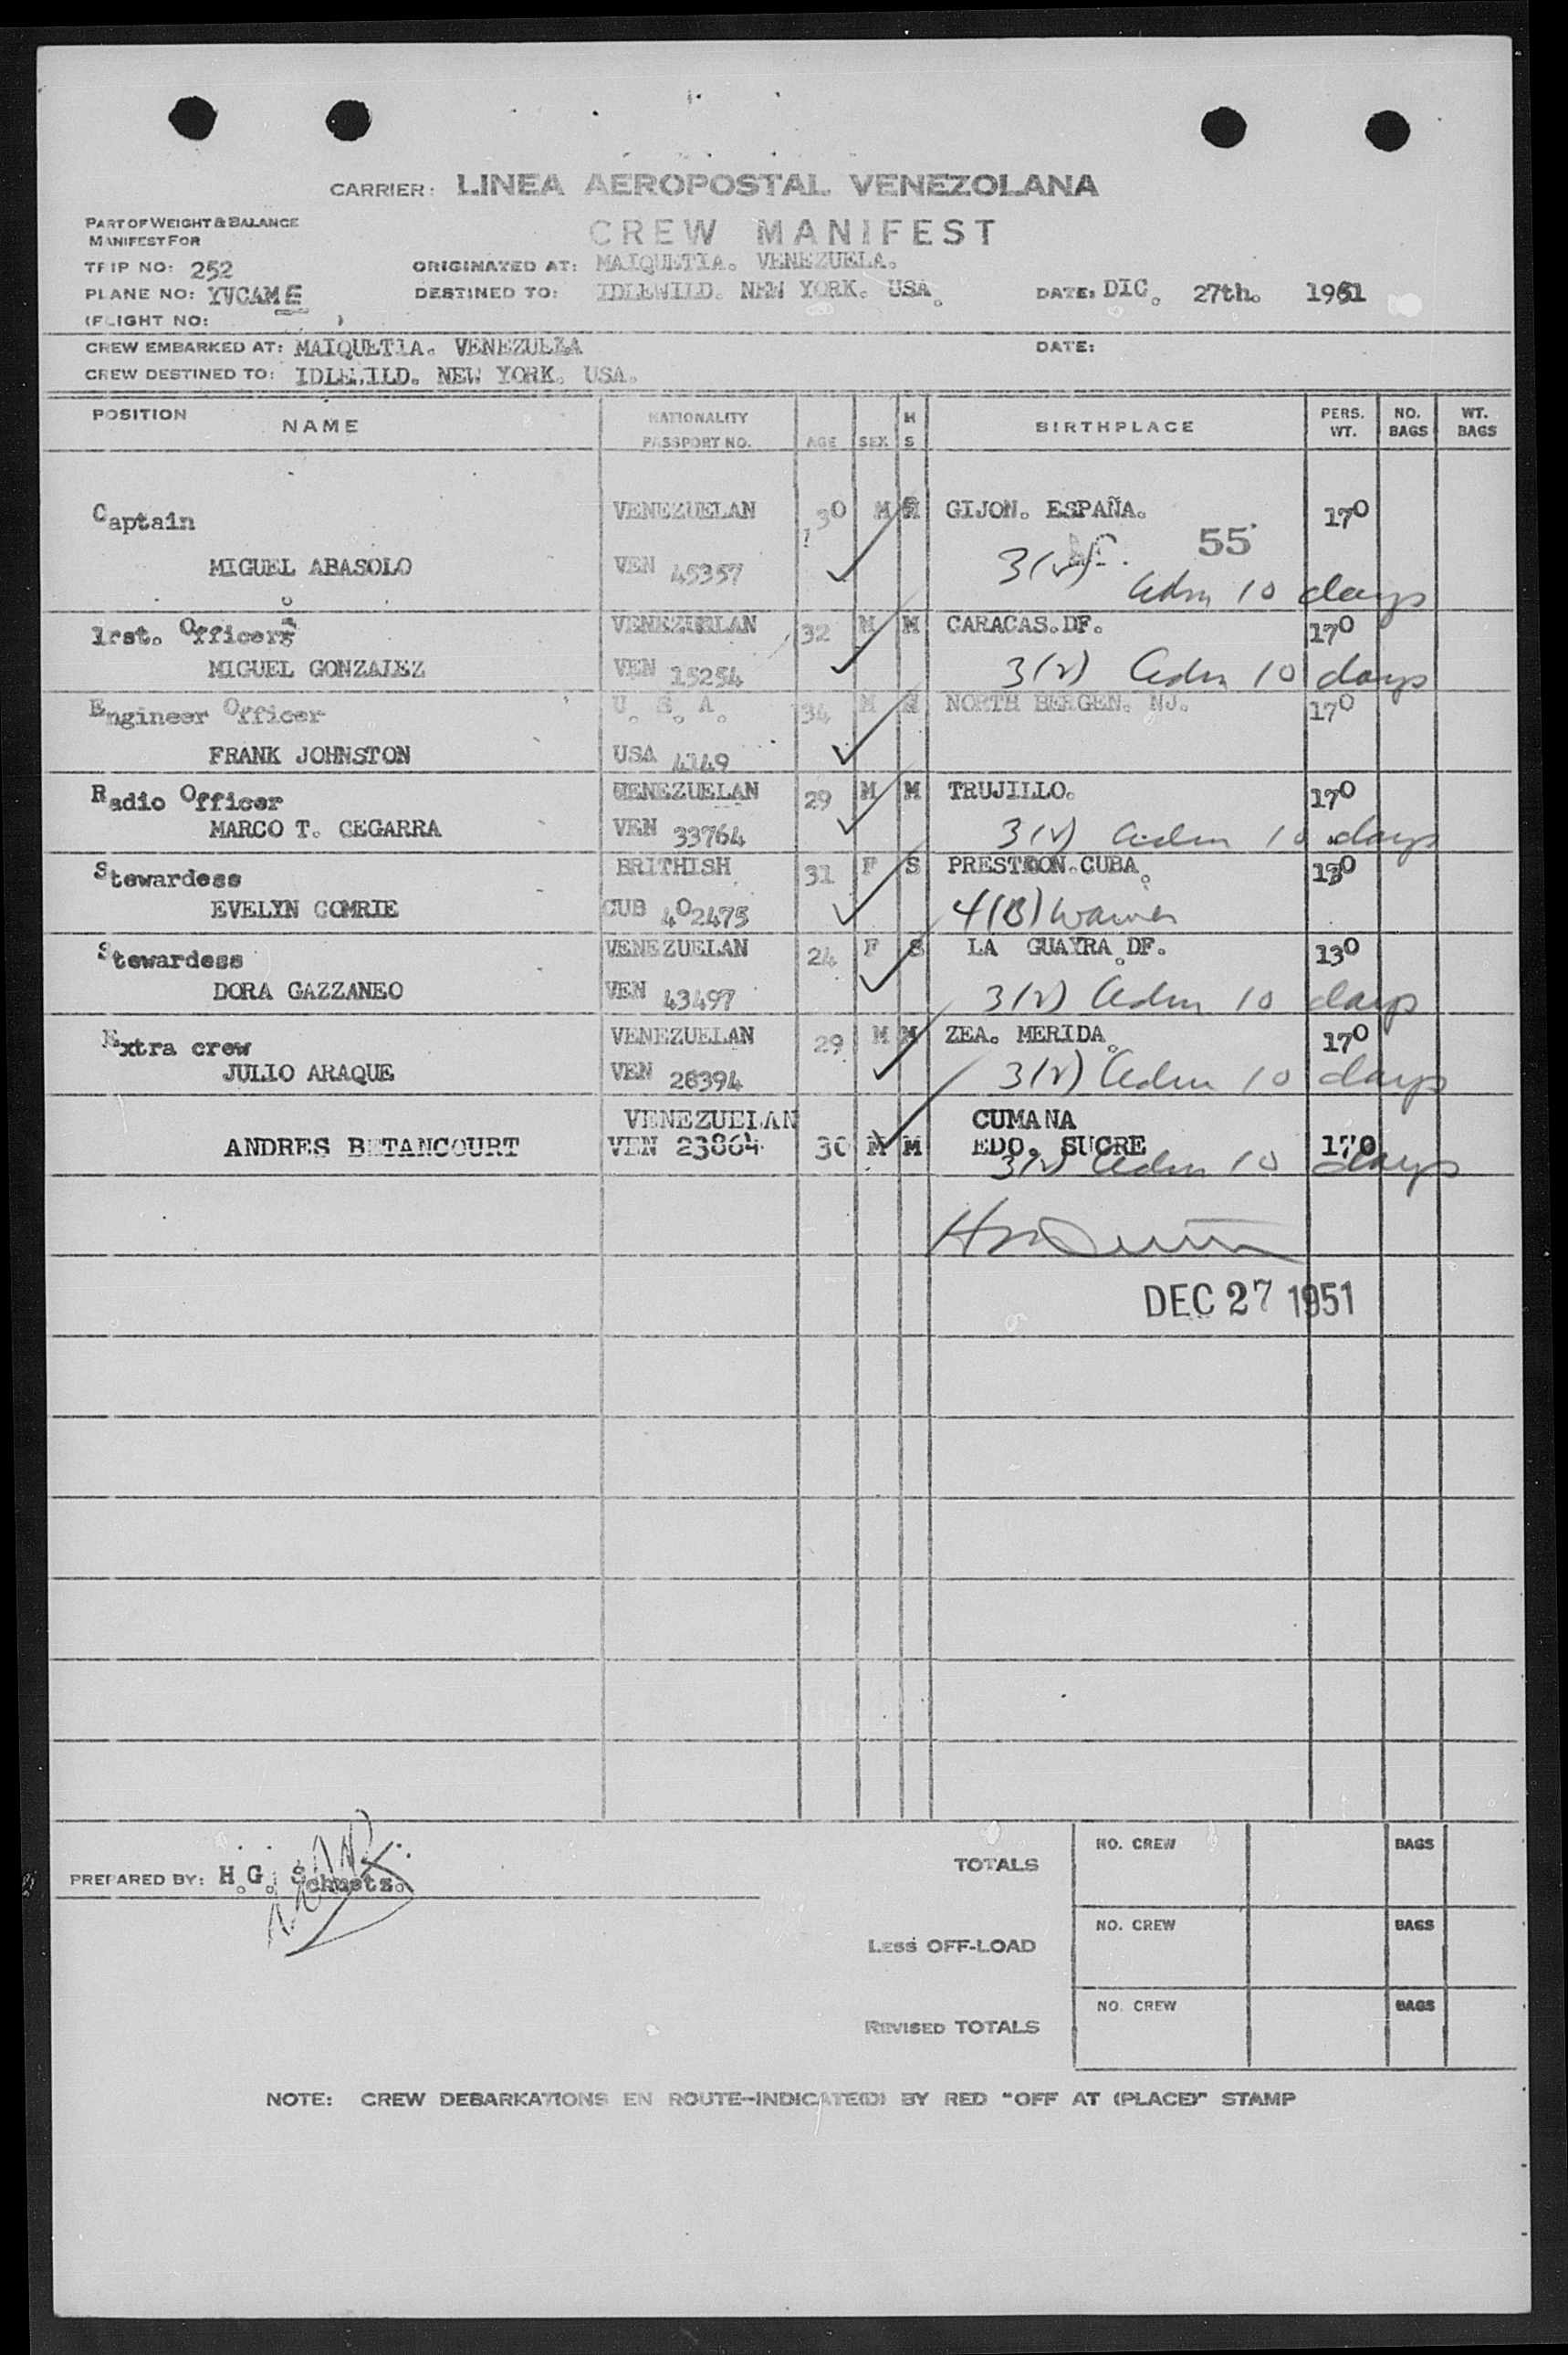 CARRIER: LINEA AEROPOSTAL VENEZOLANA
PART OF WEIGHT & BALANCE
MANIFEST FOR
CREW MANIFEST
TRIP NO: 252
ORIGINATED AT: MAIQUETIA. VENEZUELA.
PLANE NO: YVCAME
DESTINED TO: IDLEWILD. NEW YORK. USA.
DATE: DIC. 27th. 1951
(FLIGHT NO: )
CREW EMBARKED AT: MAIQUETIA. VENEZUELA
DATE:
CREW DESTINED TO: IDLEWILD. NEW YORK. USA.
POSITION NAME NATIONALITY PASSPORT NO. AGE SEX M S BIRTHPLACE PERS. WT. NO. BAGS WT. BAGS
Captain VENEZUELAN 30 M GIJON. ESPAÑA. 170
55
MIGUEL ABASOLO VEN 45357 3(v) Adm 10 days
1rst. Officer VENEZUELAN 32 M M CARACAS.DF. 170
MIGUEL GONZALEZ VEN 15254 3(v) Adm 10 days
Engineer Officer U. S. A. 34 M NORTH BERGEN. NJ. 170
FRANK JOHNSTON USA 4149
Radio Officer VENEZUELAN 29 M M TRUJILLO. 170
MARCO T. CEGARRA VEN 33764 3(v) Adm 10 days
Stewardess BRITHISH 31 F S PRESTON.CUBA. 130
EVELYN COMRIE CUB 402475 4(B) Waiver
Stewardess VENEZUELAN 24 F S LA GUAYRA.DF. 130
DORA GAZZANEO VEN 43497 3(v) Adm 10 days
Extra crew VENEZUELAN 29 M M ZEA. MERIDA. 170
JULIO ARAQUE VEN 26394 3(v) Adm 10 days
VENEZUELAN CUMANA
ANDRES BETANCOURT VEN 23864 30 M M EDO. SUCRE 170
3(v) Adm 10 days
DEC 27 1951
PREPARED BY: H.G. Schuetz.
TOTALS NO. CREW BAGS
LESS OFF-LOAD NO. CREW BAGS
REVISED TOTALS NO. CREW BAGS
NOTE: CREW DEBARKATIONS EN ROUTE-INDICATE(D) BY RED "OFF AT (PLACE)" STAMP